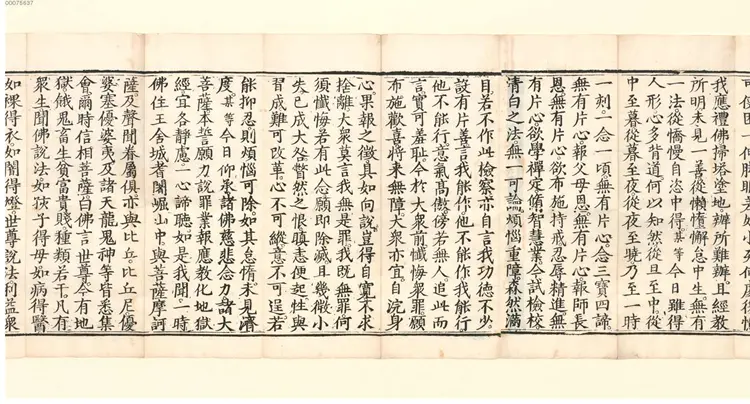 00075637
我應禮佛掃塔塗地辦所難辦且經教
所明未見一善從懶惰懈怠中生無有
一法從憍慢自恣中得某等今日雖得
人形心多背道何以知然從旦至中從
中至暮從暮至夜從夜至曉乃至一時
一刻一念一頃無有片心念三寶四諦
無有片心報父母恩無有片心報師長
恩無有片心欲布施持戒忍辱精進無
有片心欲學禪定脩智慧業今試檢校
清白之法無一可論煩惱重障森然滿
目若不作此檢察亦自言我功德不少
設有片善言我能作他不能作我能行
他不能行意氣高傲傍若無人追此而
言實可羞恥今於大衆前懺悔衆罪願
布施歡喜將來無障大衆亦宜自浣身
心果報之徵具如向說豈得自寬不求
捨離大衆莫言我無是罪我既無罪何
須懺悔若有此念願即除滅且幾微小
失已成大咎瞥然之恨嗔恚便起性與
習成難可改革心不可縱意不可逞若
能抑忍則煩惱可除如其怠惰未見濟
度某等今日仰承諸佛慈悲念力諸大
菩薩本誓願力說罪業報應教化地獄
經宜各靜慮一心諦聽如是我聞一時
佛住王舍城耆闍崛山中與菩薩摩訶
薩及聲聞眷屬俱亦與比丘比丘尼優
婆塞優婆夷及諸天龍鬼神等皆悉集
會爾時信相菩薩白佛言世尊今有地
獄餓鬼畜生貧富貴賤種類若干凡有
衆生聞佛說法如孩子得母如病得醫
如裸得衣如闇得燈世尊說法利益衆